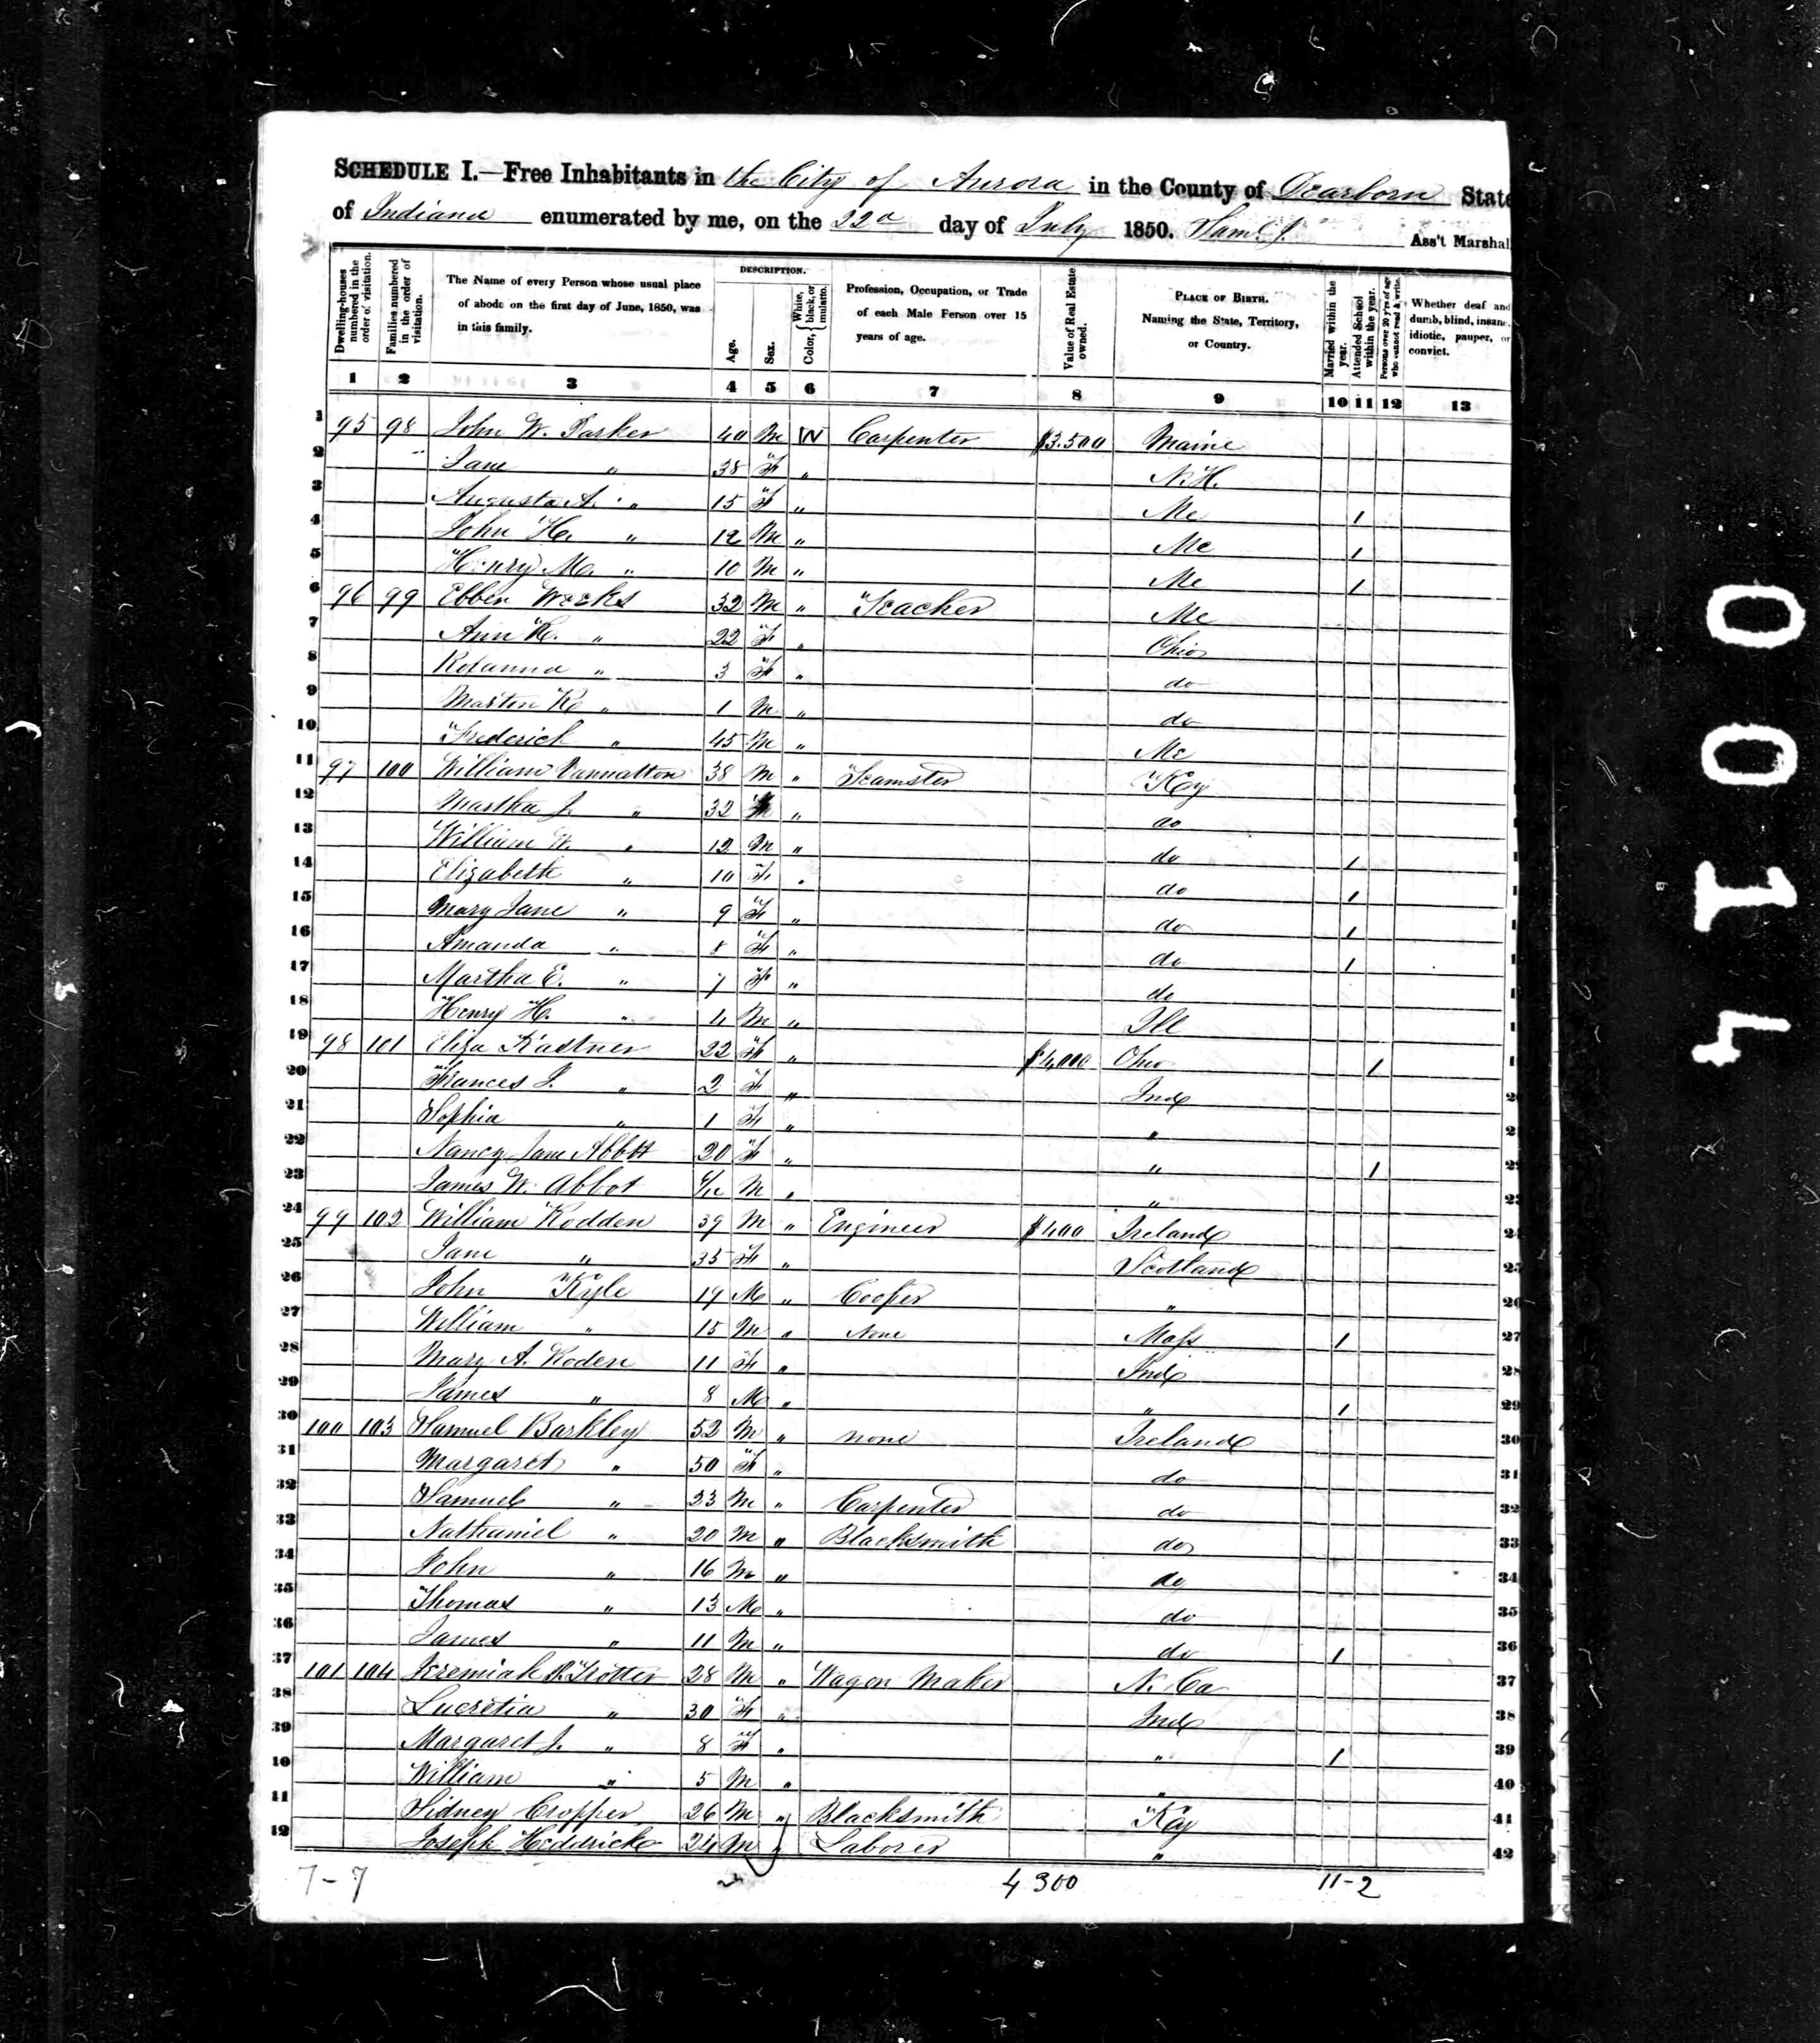 SCHEDULE I.—Free Inhabitants in the City of Aurora in the County of Dearborn State
of Indiana enumerated by me, on the 22d day of July 1850. Saml. J. Ass't Marshal
Dwelling-houses numbered in the order of visitation.
Families numbered in the order of visitation.
The Name of every Person whose usual place of abode on the first day of June, 1850, was in this family.
DESCRIPTION.
Age.
Sex.
Color, { White, black, or mulatto.
Profession, Occupation, or Trade of each Male Person over 15 years of age.
Value of Real Estate owned.
PLACE OF BIRTH. Naming the State, Territory, or Country.
Married within the year.
Attended School within the year.
Persons over 20 y'rs of age who cannot read & write.
Whether deaf and dumb, blind, insane, idiotic, pauper, or convict.
1 2 3 4 5 6 7 8 9 10 11 12 13
1 95 98 John W. Parker 40 M W Carpenter $3.500 Maine
2 Jane " 38 F " N.H.
3 Augusta A. " 15 F " Me 1
4 John H. " 12 M " Me 1
5 Henry M. " 10 M " Me 1
6 96 99 Ebben Weeks 32 M " Teacher Me
7 Ann K. " 22 F " Ohio
8 Rosanna " 3 F " do
9 Marten K " 1 M " do
10 Frederick " 45 M " Me
11 97 100 William Vannatton 38 M " Teamster Ky
12 Martha J. " 32 " do
13 William W. " 12 M " do 1
14 Elizabeth " 10 F " do 1
15 Mary Jane " 9 F " do 1
16 Amanda " 8 F " do 1
17 Martha E. " 7 F " do
18 Henry H. " 4 M " Ill
19 98 101 Eliza Kastner 22 F " $4,000 Ohio 1
20 Frances J. " 2 F " Ind 2
21 Sophia " 1 F " " 2
22 Nancy Jane Abbtt 20 F " " 1 22
23 James W. Abbot 6/12 M " " 23
24 99 102 William Rodden 39 M " Engineer $400 Ireland 24
25 Jane " 35 F " Scotland 25
26 John Kyle 19 M " Cooper " 26
27 William " 15 M " None Mass 1 27
28 Mary A. Roden 11 F " Ind 28
29 James " 8 M " " 1 29
30 100 103 Samuel Barkley 52 M " none Ireland 30
31 Margaret " 50 F " do 31
32 Samuel " 23 M " Carpenter do 32
33 Nathaniel " 20 M " Blacksmith do 33
34 John " 16 M " do 34
35 Thomas " 13 M " do 35
36 James " 11 M " do 1 36
37 101 104 Jeremiah R. Trotter 28 M " Wagon Maker N. Ca 37
38 Lucretia " 30 F " Ind 38
39 Margaret J. " 8 F " " 1 39
10 William " 5 M " " 40
11 Sidney Cropper 26 M " Blacksmith Ky 41
12 Joseph Heddrick 24 M " Laborer " 42
7-7 4300 11-2
0014